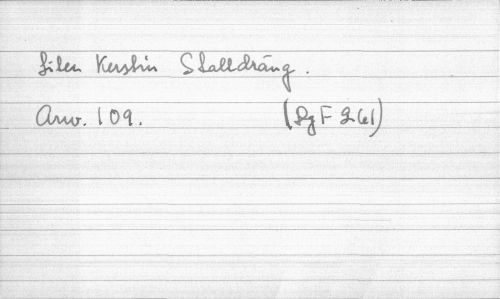 Liten Kerstin Stalldräng.
Arw. 109. (DgF 261)